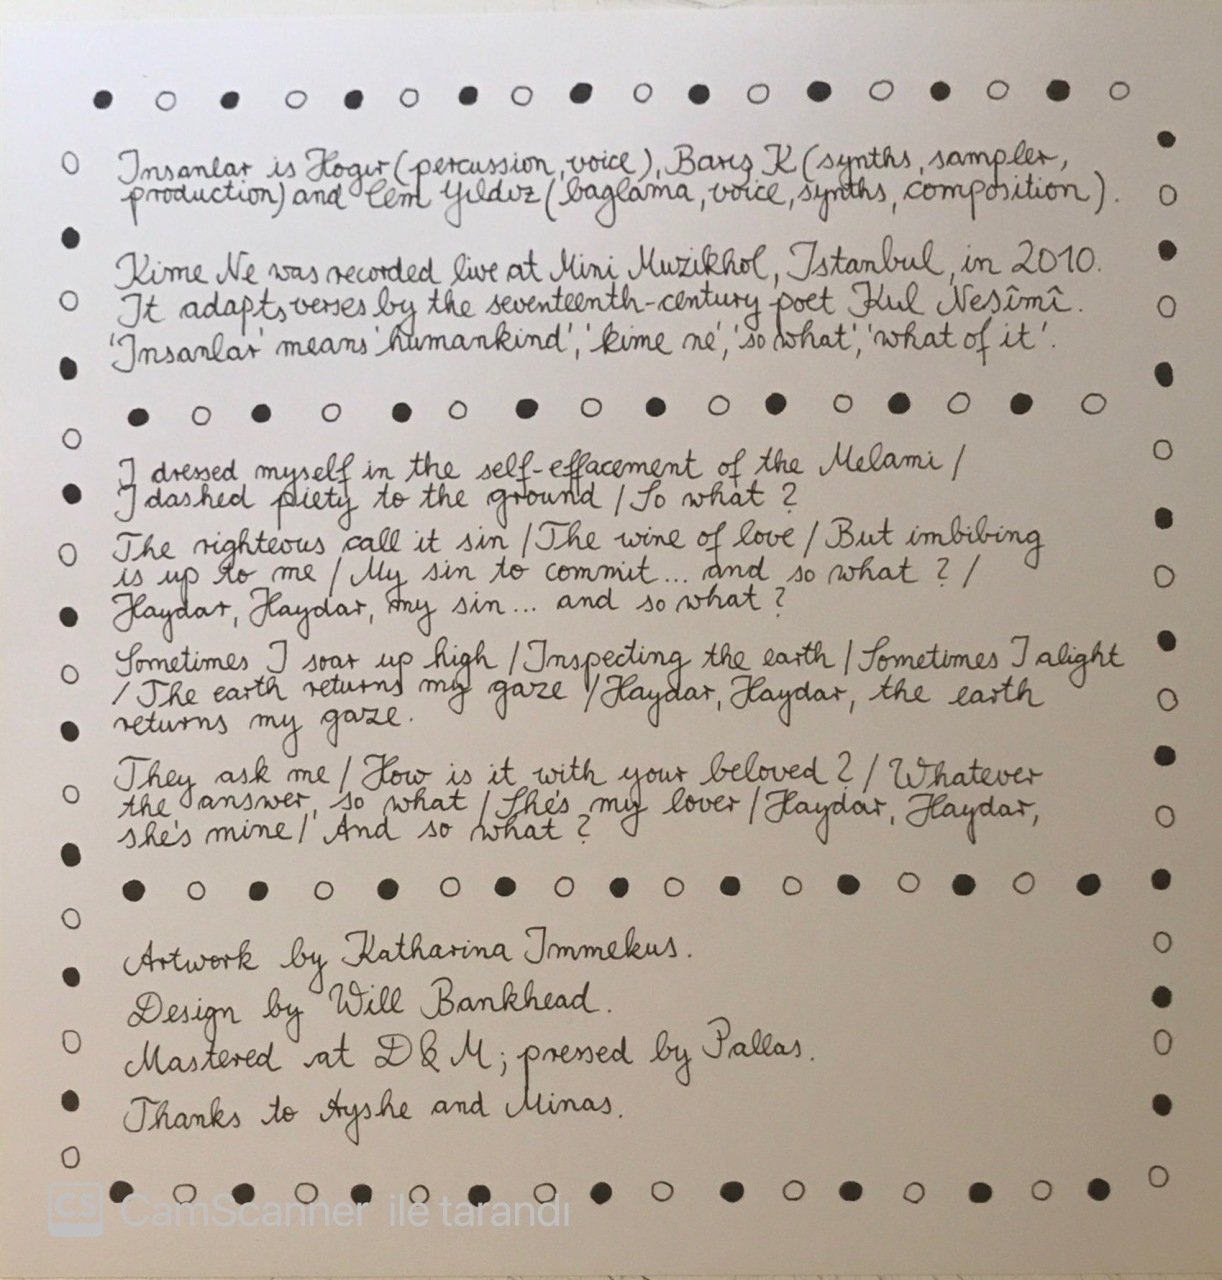 Insanlar is Hogır (percussion, voice), Barış K (synths, sampler,
production) and Cem Yıldız (baglama, voice, synths, composition).
Kime Ne was recorded live at Mini Muzikhol, Istanbul, in 2010.
It adapts verses by the seventeenth-century poet Kul Nesîmî.
'Insanlar' means 'humankind', 'kime ne', 'so what', 'what of it'.
I dressed myself in the self-effacement of the Melami /
I dashed piety to the ground / So what?
The righteous call it sin / The wine of love / But imbibing
is up to me / My sin to commit... and so what? /
Haydar, Haydar, my sin... and so what?
Sometimes I soar up high / Inspecting the earth / Sometimes I alight
/ The earth returns my gaze / Haydar, Haydar, the earth
returns my gaze.
They ask me / How is it with your beloved? / Whatever
the answer, so what / She's my lover / Haydar, Haydar,
she's mine / And so what?
Artwork by Katharina Immekus.
Design by Will Bankhead.
Mastered at D&M; pressed by Pallas.
Thanks to Ayshe and Minas.
CS CamScanner ile tarandı